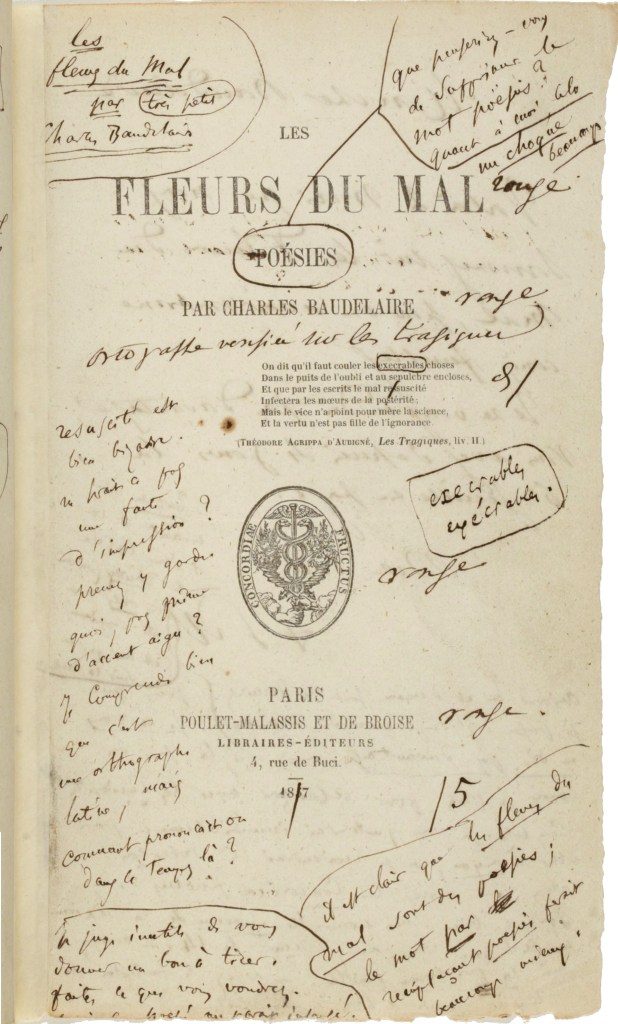 les
fleurs du Mal
par très petit
Charles Baudelaire
que penseriez-vous
de supprimer le
mot poésies?
quant à moi cela
me choque
beaucoup
rouge.
LES
FLEURS DU MAL
POÉSIES
PAR CHARLES BAUDELAIRE
rouge
ortografe vérifié sur les tragiques
On dit qu'il faut couler les execrables choses
Dans le puits de l'oubli et au sepulchre encloses,
Et que par les escrits le mal resuscité
Infectera les mœurs de la postérité;
Mais le vice n'a point pour mère la science,
Et la vertu n'est pas fille de l'ignorance.
(THÉODORE AGRIPPA D'AUBIGNÉ, Les Tragiques, liv. II.)
resuscité est
bien bizarre.
ne serait-ce pas
une faute
d'impression?
prenez y garde.
quoi, pas même
d'accent aigu?
Je comprends bien
que c'est
une orthographe
latine, mais
comment prononçait-on
dans le temps là?
execrables
exécrables.
CONCORDIAE FRUCTUS
rouge
PARIS
POULET-MALASSIS ET DE BROISE
rouge.
LIBRAIRES-ÉDITEURS
4, rue de Buci.
1857
/5
il est clair que les fleurs du
mal sont des poésies;
le mot par
remplaçant poésies ferait
beaucoup mieux.
Je juge inutile de vous
donner un bon à tirer.
faites ce que vous voudrez.